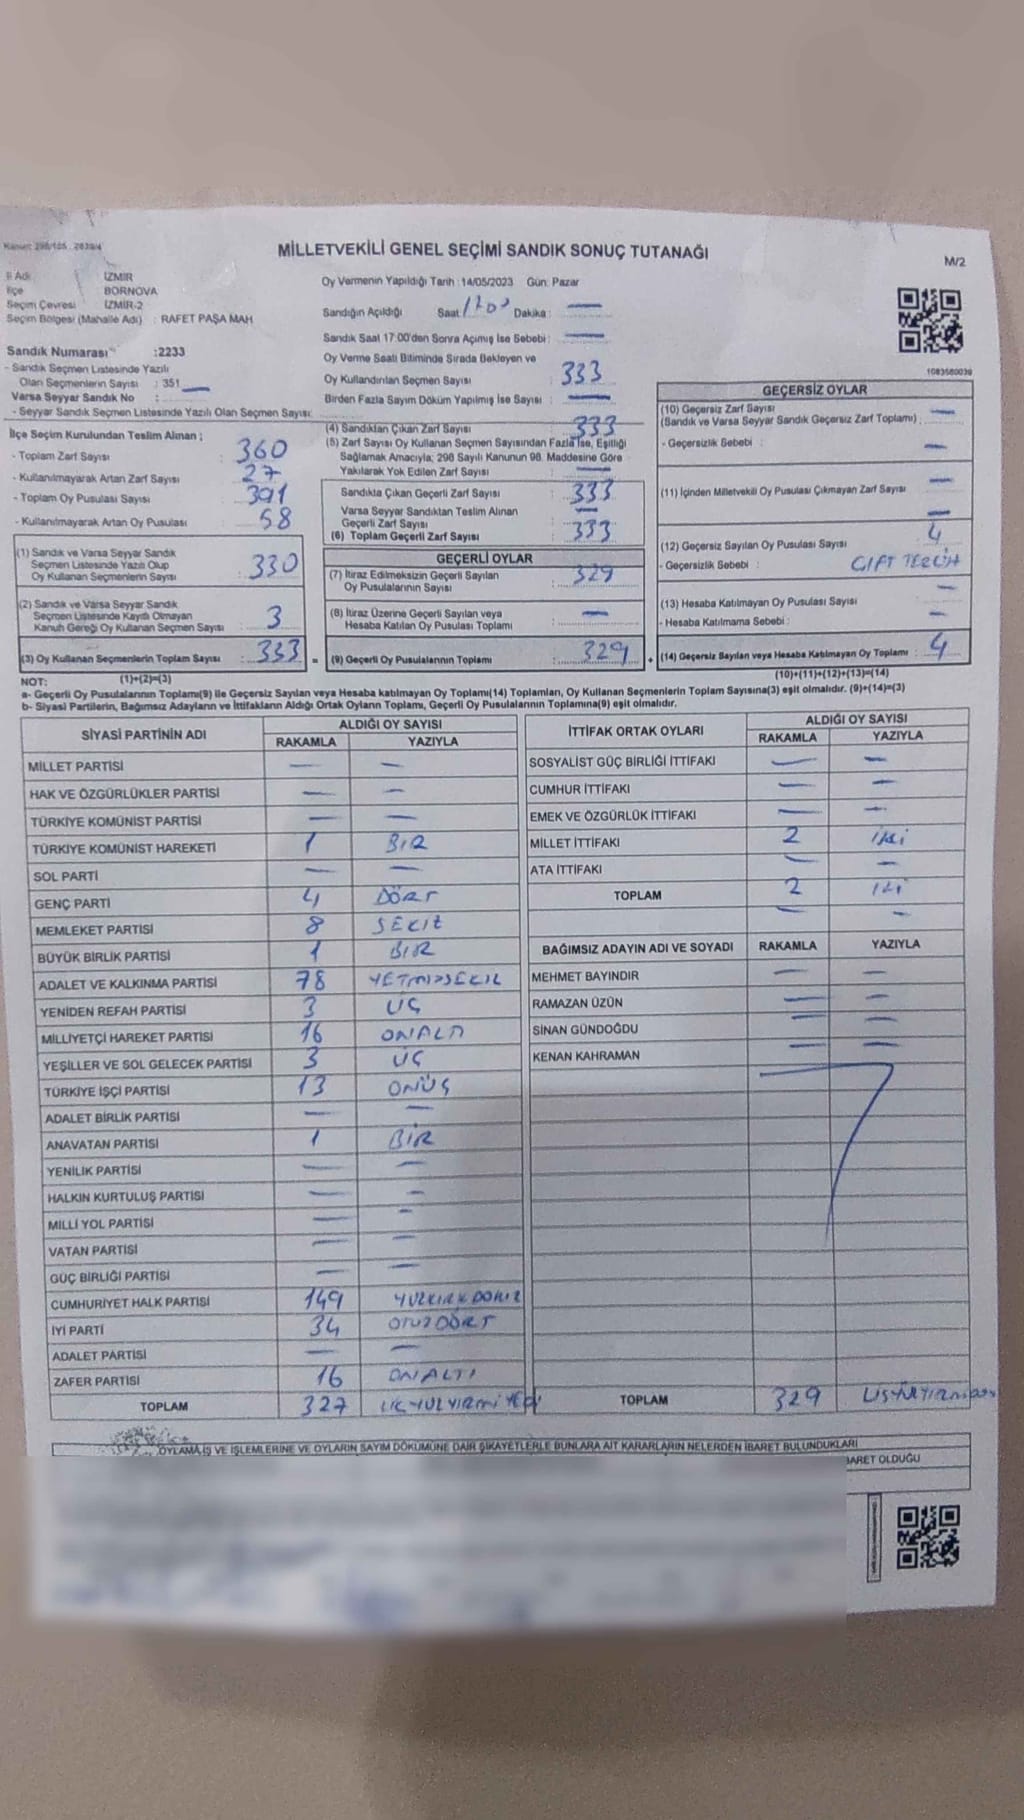 MİLLETVEKİLİ GENEL SEÇİMİ SANDIK SONUÇ TUTANAĞI
M/2
İl Adı : İZMİR
İlçe : BORNOVA
Seçim Çevresi : İZMİR-2
Seçim Bölgesi (Mahalle Adı) : RAFET PAŞA MAH
Sandık Numarası :2233
- Sandık Seçmen Listesinde Yazılı
Olan Seçmenlerin Sayısı : 351 —
Varsa Seyyar Sandık No :
- Seyyar Sandık Seçmen Listesinde Yazılı Olan Seçmen Sayısı:
İlçe Seçim Kurulundan Teslim Alınan ;
- Toplam Zarf Sayısı : 360
- Kullanılmayarak Artan Zarf Sayısı : 27
- Toplam Oy Pusulası Sayısı : 391
- Kullanılmayarak Artan Oy Pusulası : 58
(1) Sandık ve Varsa Seyyar Sandık
Seçmen Listesinde Yazılı Olup
Oy Kullanan Seçmenlerin Sayısı : 330
(2) Sandık ve Varsa Seyyar Sandık
Seçmen Listesinde Kayıtlı Olmayan
Kanun Gereği Oy Kullanan Seçmen Sayısı : 3
(3) Oy Kullanan Seçmenlerin Toplam Sayısı : 333
Oy Vermenin Yapıldığı Tarih : 14/05/2023 Gün: Pazar
Sandığın Açıldığı Saat : 1700 Dakika : —
Sandık Saat 17:00'den Sonra Açılmış İse Sebebi : —
Oy Verme Saati Bitiminde Sırada Bekleyen ve
Oy Kullandırılan Seçmen Sayısı : 333
Birden Fazla Sayım Döküm Yapılmış İse Sayısı : —
(4) Sandıktan Çıkan Zarf Sayısı : 333
(5) Zarf Sayısı Oy Kullanan Seçmen Sayısından Fazla İse, Eşitliği
Sağlamak Amacıyla; 298 Sayılı Kanunun 98. Maddesine Göre
Yakılarak Yok Edilen Zarf Sayısı : —
Sandıkta Çıkan Geçerli Zarf Sayısı : 333
Varsa Seyyar Sandıktan Teslim Alınan
Geçerli Zarf Sayısı : —
(6) Toplam Geçerli Zarf Sayısı : 333
GEÇERLİ OYLAR
(7) İtiraz Edilmeksizin Geçerli Sayılan
Oy Pusulalarının Sayısı : 329
(8) İtiraz Üzerine Geçerli Sayılan veya
Hesaba Katılan Oy Pusulası Toplamı : —
= (9) Geçerli Oy Pusulalarının Toplamı : 329 +
1083580039
GEÇERSİZ OYLAR
(10) Geçersiz Zarf Sayısı
(Sandık ve Varsa Seyyar Sandık Geçersiz Zarf Toplamı) : —
- Geçersizlik Sebebi : —
(11) İçinden Milletvekili Oy Pusulası Çıkmayan Zarf Sayısı : —
(12) Geçersiz Sayılan Oy Pusulası Sayısı : 4
- Geçersizlik Sebebi : ÇİFT TERCİH
(13) Hesaba Katılmayan Oy Pusulası Sayısı : —
- Hesaba Katılmama Sebebi : —
(14) Geçersiz Sayılan veya Hesaba Katılmayan Oy Toplamı : 4
NOT: (1)+(2)=(3) (10)+(11)+(12)+(13)=(14)
a- Geçerli Oy Pusulalarının Toplamı(9) ile Geçersiz Sayılan veya Hesaba katılmayan Oy Toplamı(14) Toplamları, Oy Kullanan Seçmenlerin Toplam Sayısına(3) eşit olmalıdır. (9)+(14)=(3)
b- Siyasi Partilerin, Bağımsız Adayların ve İttifakların Aldığı Ortak Oyların Toplamı, Geçerli Oy Pusulalarının Toplamına(9) eşit olmalıdır.
SİYASİ PARTİNİN ADI ALDIĞI OY SAYISI
RAKAMLA YAZIYLA
MİLLET PARTİSİ — —
HAK VE ÖZGÜRLÜKLER PARTİSİ — —
TÜRKİYE KOMÜNİST PARTİSİ — —
TÜRKİYE KOMÜNİST HAREKETİ 1 BİR
SOL PARTİ — —
GENÇ PARTİ 4 DÖRT
MEMLEKET PARTİSİ 8 SEKİZ
BÜYÜK BİRLİK PARTİSİ 1 BİR
ADALET VE KALKINMA PARTİSİ 78 YETMİŞSEKİZ
YENİDEN REFAH PARTİSİ 3 ÜÇ
MİLLİYETÇİ HAREKET PARTİSİ 16 ONALTI
YEŞİLLER VE SOL GELECEK PARTİSİ 3 ÜÇ
TÜRKİYE İŞÇİ PARTİSİ 13 ONÜÇ
ADALET BİRLİK PARTİSİ — —
ANAVATAN PARTİSİ 1 BİR
YENİLİK PARTİSİ — —
HALKIN KURTULUŞ PARTİSİ — —
MİLLİ YOL PARTİSİ — —
VATAN PARTİSİ — —
GÜÇ BİRLİĞİ PARTİSİ — —
CUMHURİYET HALK PARTİSİ 149 YÜZKIRKDOKUZ
İYİ PARTİ 34 OTUZDÖRT
ADALET PARTİSİ — —
ZAFER PARTİSİ 16 ONALTI
TOPLAM 327 ÜÇYÜZYİRMİYEDİ
İTTİFAK ORTAK OYLARI ALDIĞI OY SAYISI
RAKAMLA YAZIYLA
SOSYALİST GÜÇ BİRLİĞİ İTTİFAKI — —
CUMHUR İTTİFAKI — —
EMEK VE ÖZGÜRLÜK İTTİFAKI — —
MİLLET İTTİFAKI 2 İKİ
ATA İTTİFAKI — —
TOPLAM 2 İKİ
— —
BAĞIMSIZ ADAYIN ADI VE SOYADI RAKAMLA YAZIYLA
MEHMET BAYINDIR — —
RAMAZAN ÜZÜN — —
SİNAN GÜNDOĞDU — —
KENAN KAHRAMAN — —
TOPLAM 329
OYLAMA İŞ VE İŞLEMLERİNE VE OYLARIN SAYIM DÖKÜMÜNE DAİR ŞİKAYETLERLE BUNLARA AİT KARARLARIN NELERDEN İBARET BULUNDUKLARI
BARET OLDUĞU